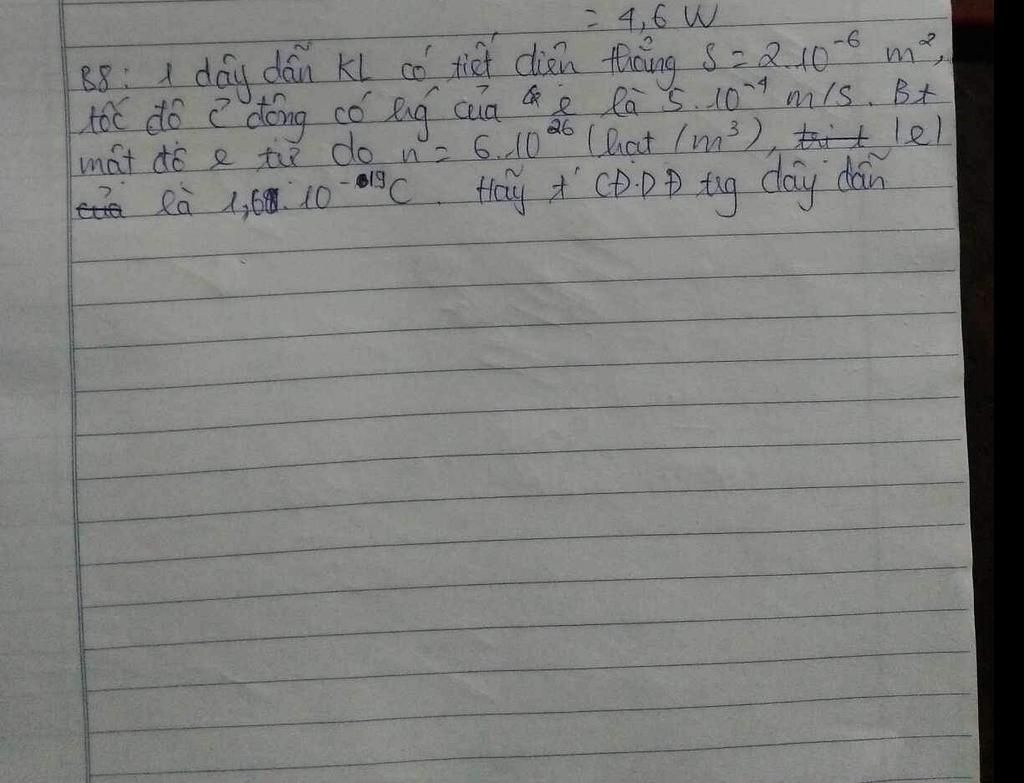 = 4,6 W
B8: 1 dây dẫn KL có tiết diện thẳng S = 2.10⁻⁶ m²,
tốc độ c̉ động có hg của e là 5.10⁻⁴ m/s. Bt
mật độ e tự do n = 6.10²⁶ (hạt /m³), |e|
là 1,6.10⁻¹⁹C. Hãy t' CĐDĐ trg dây dẫn